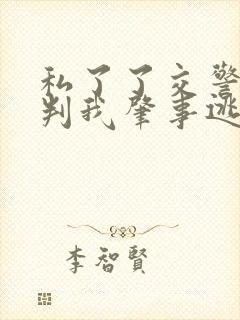 私了了交警
判我肇事逃
李智賢